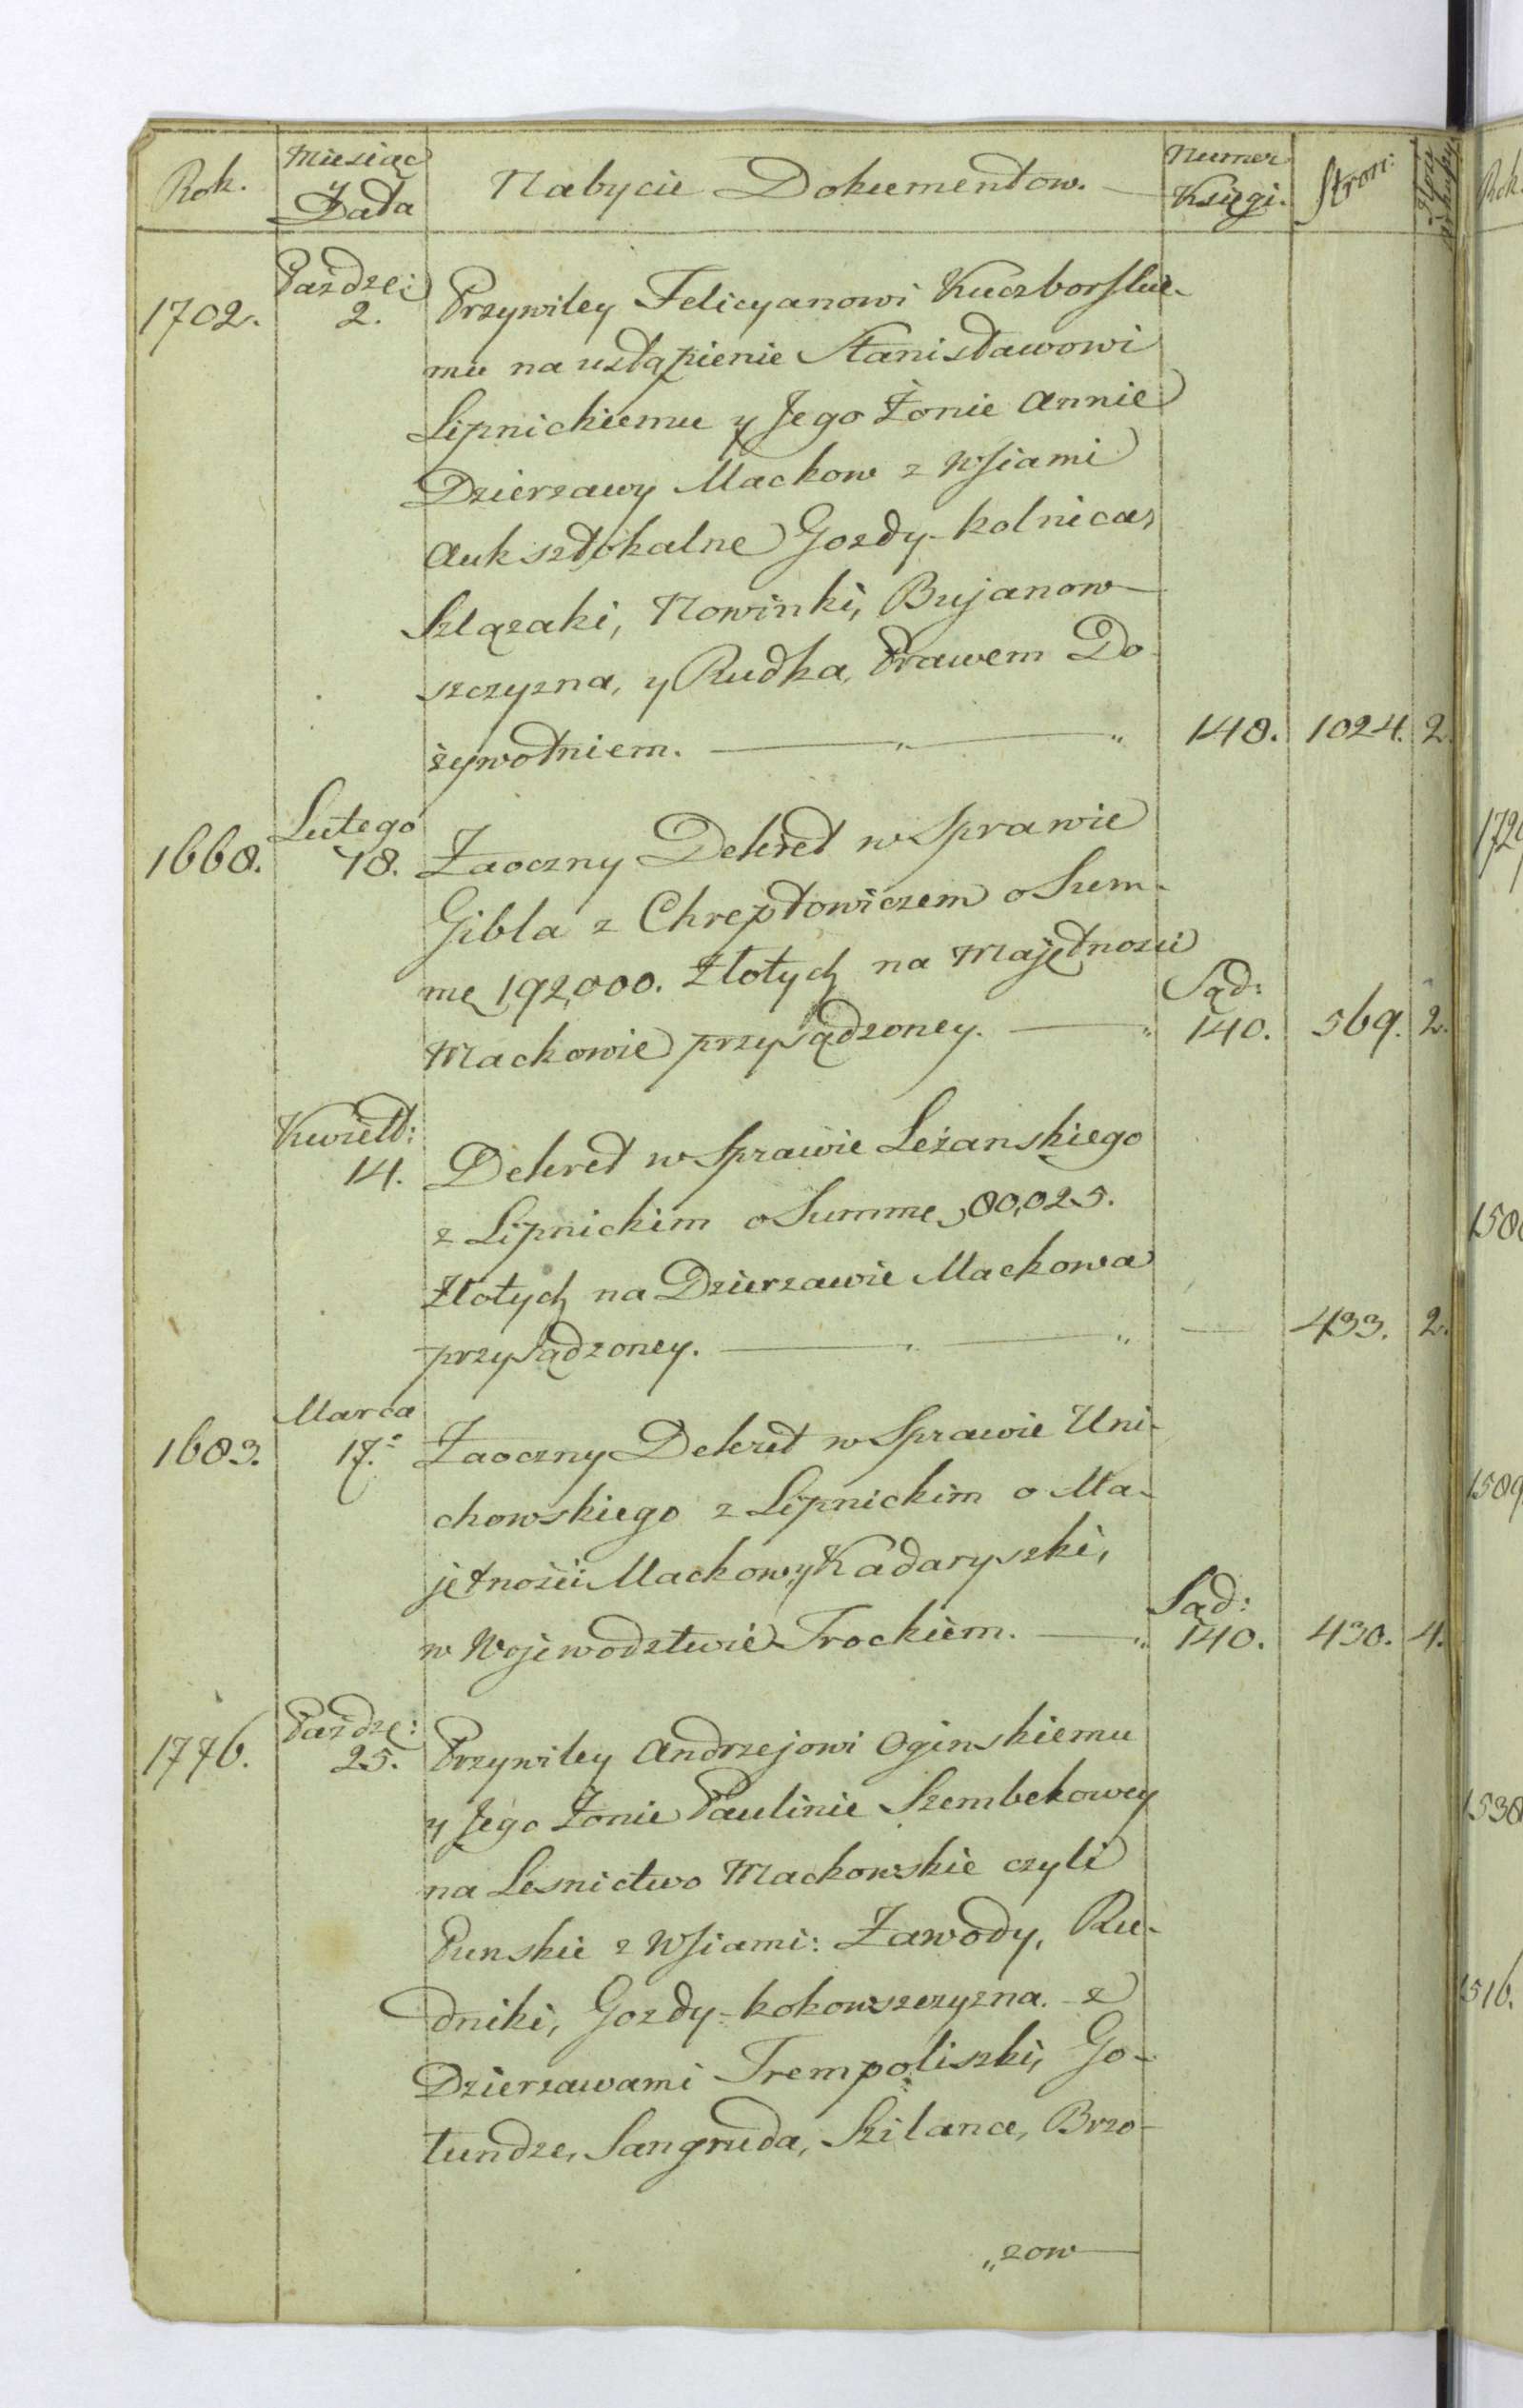 Rok. Miesiąc y Data Nabycie Dokumentow. Numer Księgi. Stron:
1702. Paźdze: 2. Przywiley Felicyanowi Kuczborskie-
mu na ustąpienie Stanisławowi
Lipnickiemu y Jego Żonie Annie
Dzierzawy Mackow z Wsiami
Auksztokalne Gozdy-kolnica,
Szlązaki, Nowinki, Bujanow-
szczyzna, y Rudka, Prawem Do-
żywotniem. 148. 1024. 2.
1668. Lutego 18. Zaoczny Dekret w Sprawie
Gibla z Chreptowiczem o Sum-
mę 192,000. Złotych na Majętności
Mackowie przysądzoney. Sąd: 140. 569. 2.
Kwiet: 14. Dekret w Sprawie Leżanskiego
z Lipnickim o Summę 80,025.
Złotych na Dzierzawie Mackowa
przysądzoney. — 433. 2.
1683. Marca 17. Zaoczny Dekret w Sprawie Uni-
chowskiego z Lipnickim o Ma-
jętności Mackow y Kadaryszki,
w Wojewodztwie Trockiem. Sąd: 140. 430. 4.
1776. Paźdze: 25. Przywiley Andrzejowi Oginskiemu
y Jego Żonie Paulinie Szembekowey
na Lesnictwo Mackowskie czyli
Punskie z Wsiami: Zawody, Ru-
dniki, Gozdy-kokowszczyzna. z
Dzierzawami Trempoliszki, Go-
tundze, Sangruda, Szilance, Brzo-
„zow